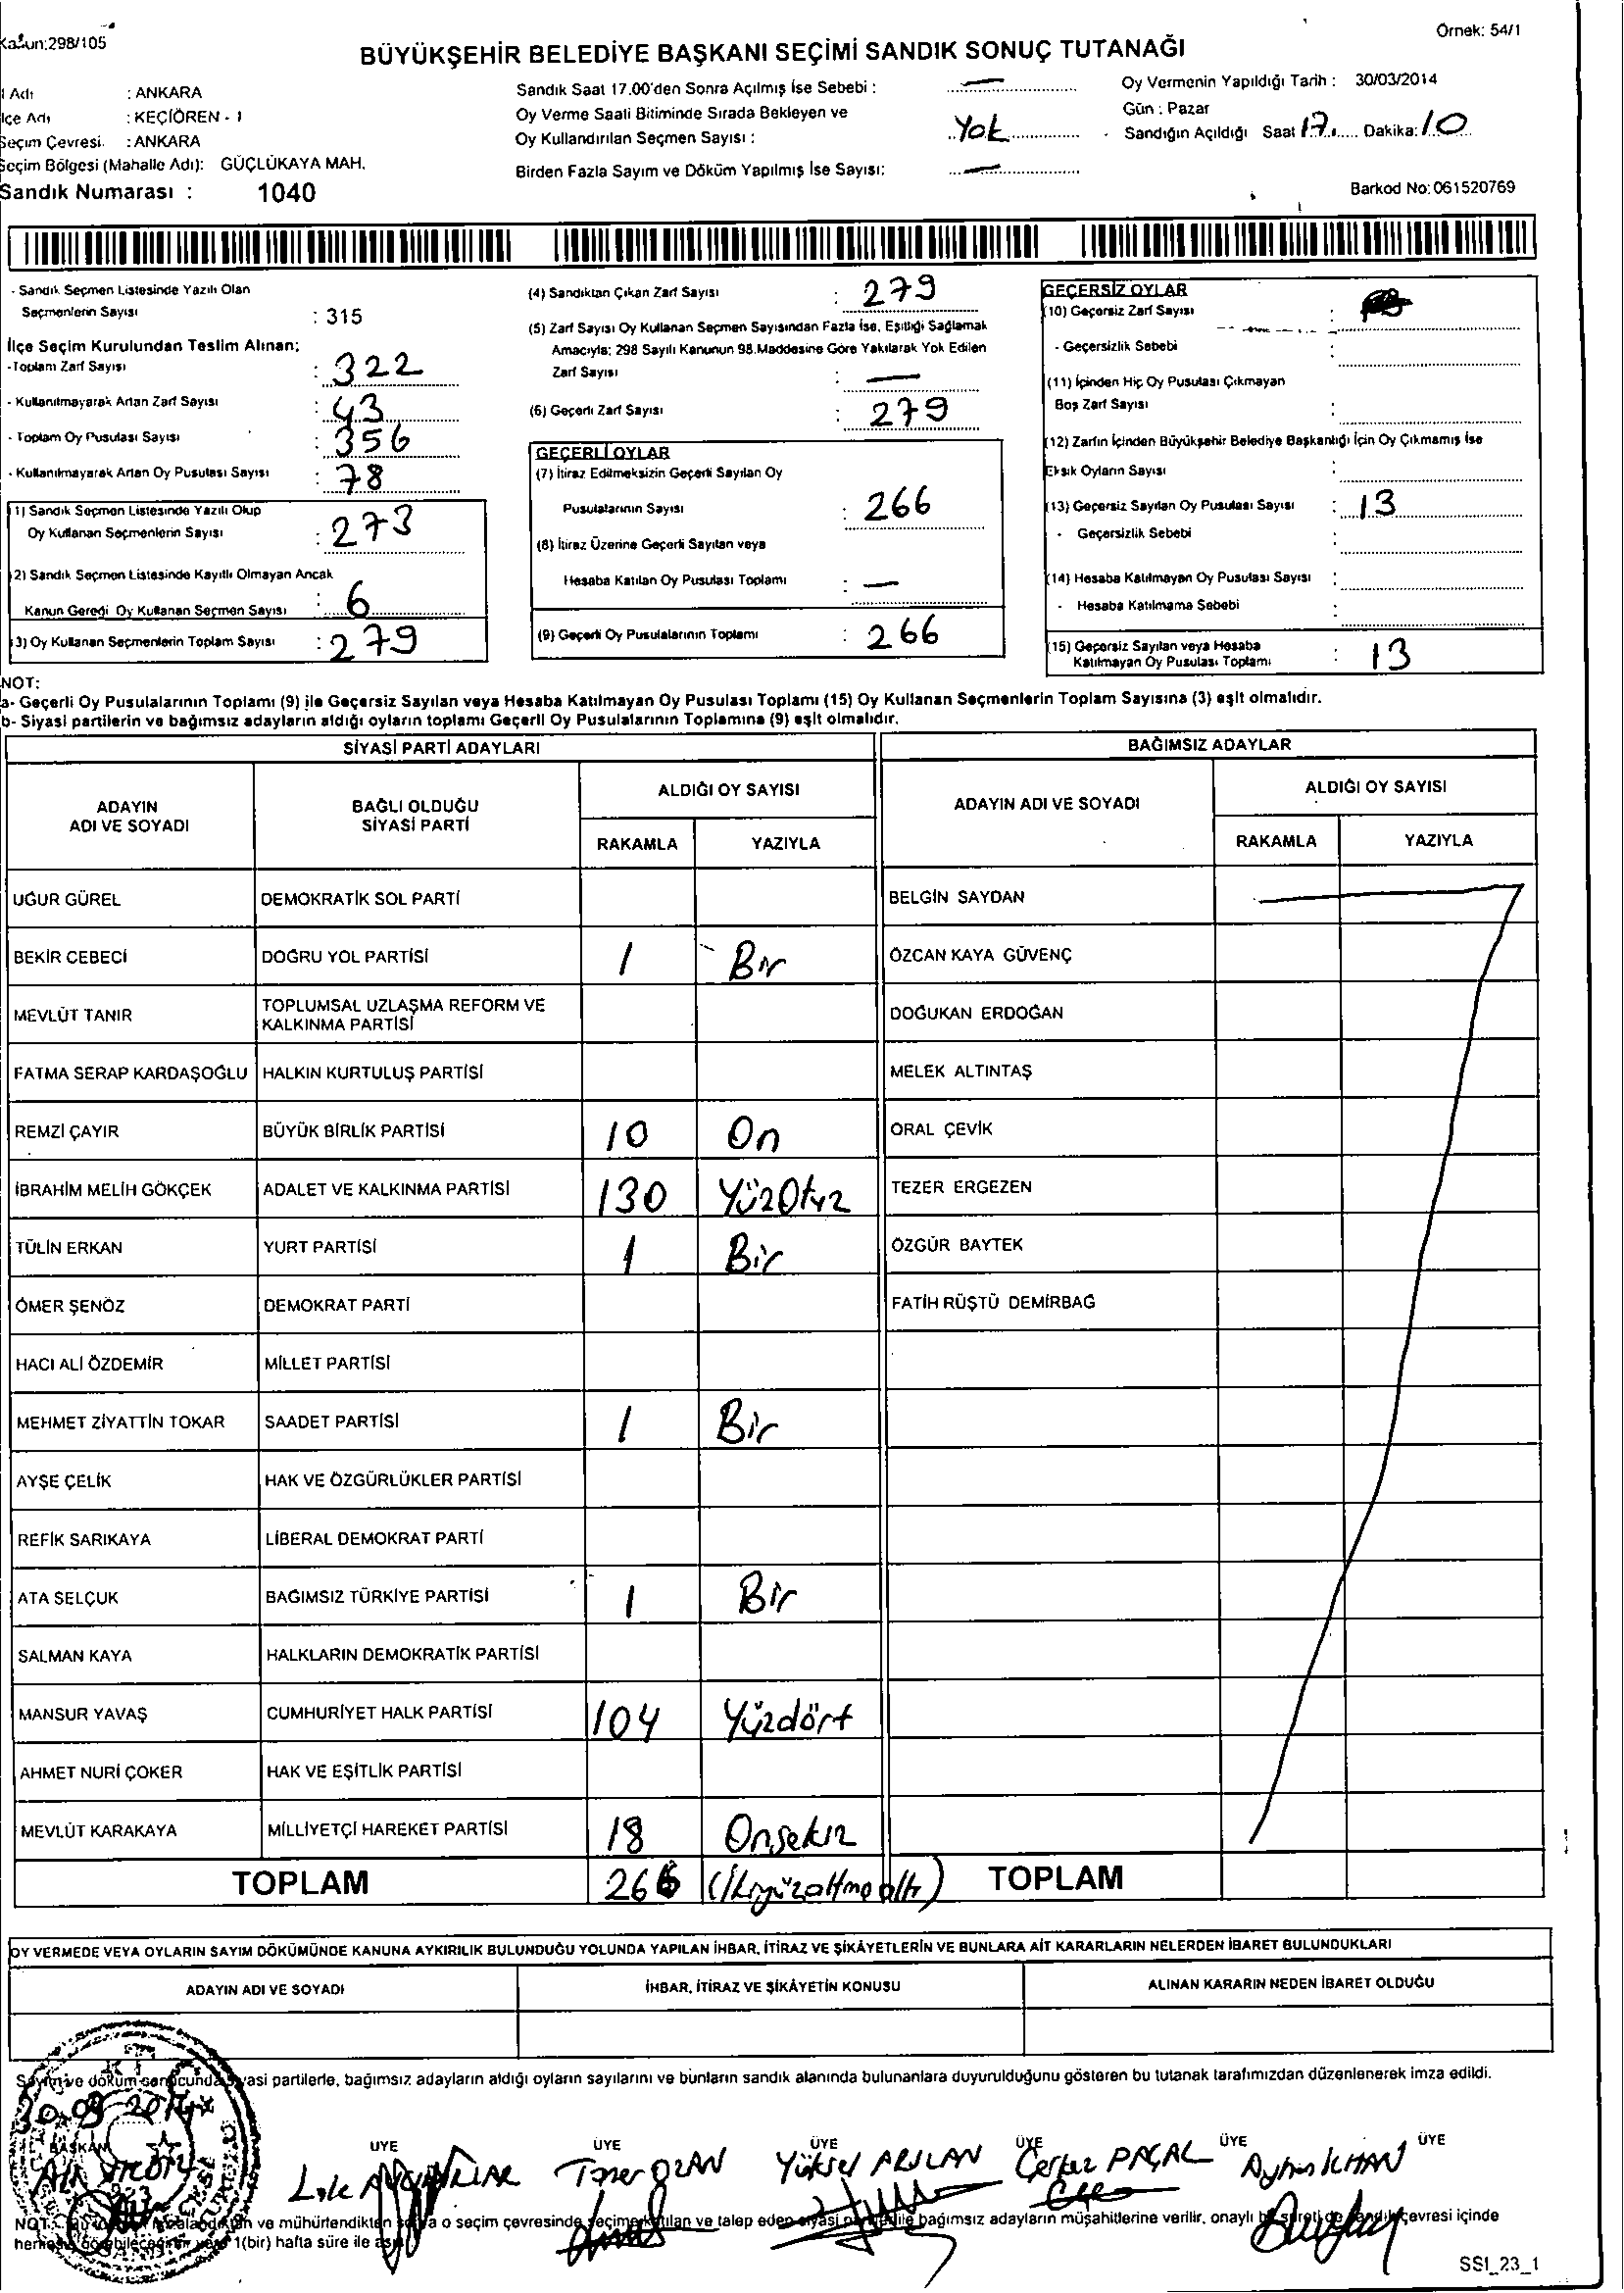 Kanun:298/105
Örnek: 54/1
BÜYÜKŞEHİR BELEDİYE BAŞKANI SEÇİMİ SANDIK SONUÇ TUTANAĞI
Adı : ANKARA
lçe Adı : KEÇİÖREN - 1
Seçim Çevresi. : ANKARA
Seçim Bölgesi (Mahalle Adı): GÜÇLÜKAYA MAH.
Sandık Numarası : 1040
Sandık Saat 17.00'den Sonra Açılmış İse Sebebi : —
Oy Verme Saati Bitiminde Sırada Bekleyen ve
Oy Kullandırılan Seçmen Sayısı : Yok
Birden Fazla Sayım ve Döküm Yapılmış İse Sayısı: —
Oy Vermenin Yapıldığı Tarih : 30/03/2014
Gün : Pazar
Sandığın Açıldığı Saat 17 Dakika: 10
Barkod No: 061520769
- Sandık Seçmen Listesinde Yazılı Olan
Seçmenlerin Sayısı : 315
İlçe Seçim Kurulundan Teslim Alınan;
-Toplam Zarf Sayısı : 322
- Kullanılmayarak Artan Zarf Sayısı : 43
- Toplam Oy Pusulası Sayısı : 356
- Kullanılmayarak Artan Oy Pusulası Sayısı : 78
1) Sandık Seçmen Listesinde Yazılı Olup
Oy Kullanan Seçmenlerin Sayısı : 273
2) Sandık Seçmen Listesinde Kayıtlı Olmayan Ancak
Kanun Gereği Oy Kullanan Seçmen Sayısı : 6
3) Oy Kullanan Seçmenlerin Toplam Sayısı : 279
(4) Sandıktan Çıkan Zarf Sayısı : 279
(5) Zarf Sayısı Oy Kullanan Seçmen Sayısından Fazla İse, Eşitliği Sağlamak
Amacıyla; 298 Sayılı Kanunun 98.Maddesine Göre Yakılarak Yok Edilen
Zarf Sayısı : —
(6) Geçerli Zarf Sayısı : 279
GEÇERLİ OYLAR
(7) İtiraz Edilmeksizin Geçerli Sayılan Oy
Pusulalarının Sayısı : 266
(8) İtiraz Üzerine Geçerli Sayılan veya
Hesaba Katılan Oy Pusulası Toplamı : —
(9) Geçerli Oy Pusulalarının Toplamı : 266
GEÇERSİZ OYLAR
(10) Geçersiz Zarf Sayısı :
- Geçersizlik Sebebi :
(11) İçinden Hiç Oy Pusulası Çıkmayan
Boş Zarf Sayısı :
(12) Zarfın İçinden Büyükşehir Belediye Başkanlığı İçin Oy Çıkmamış İse
Eksik Oyların Sayısı :
(13) Geçersiz Sayılan Oy Pusulası Sayısı : 13
- Geçersizlik Sebebi :
(14) Hesaba Katılmayan Oy Pusulası Sayısı :
- Hesaba Katılmama Sebebi :
(15) Geçersiz Sayılan veya Hesaba
Katılmayan Oy Pusulası Toplamı : 13
NOT:
a- Geçerli Oy Pusulalarının Toplamı (9) ile Geçersiz Sayılan veya Hesaba Katılmayan Oy Pusulası Toplamı (15) Oy Kullanan Seçmenlerin Toplam Sayısına (3) eşit olmalıdır.
b- Siyasi partilerin ve bağımsız adayların aldığı oyların toplamı Geçerli Oy Pusulalarının Toplamına (9) eşit olmalıdır.
SİYASİ PARTİ ADAYLARI
BAĞIMSIZ ADAYLAR
ADAYIN
ADI VE SOYADI
BAĞLI OLDUĞU
SİYASİ PARTİ
ALDIĞI OY SAYISI
RAKAMLA YAZIYLA
ADAYIN ADI VE SOYADI
ALDIĞI OY SAYISI
RAKAMLA YAZIYLA
UĞUR GÜREL DEMOKRATİK SOL PARTİ BELGİN SAYDAN
BEKİR CEBECİ DOĞRU YOL PARTİSİ 1 Bir ÖZCAN KAYA GÜVENÇ
MEVLÜT TANIR TOPLUMSAL UZLAŞMA REFORM VE
KALKINMA PARTİSİ DOĞUKAN ERDOĞAN
FATMA SERAP KARDAŞOĞLU HALKIN KURTULUŞ PARTİSİ MELEK ALTINTAŞ
REMZİ ÇAYIR BÜYÜK BİRLİK PARTİSİ 10 On ORAL ÇEVİK
İBRAHİM MELİH GÖKÇEK ADALET VE KALKINMA PARTİSİ 130 YüzOtuz TEZER ERGEZEN
TÜLİN ERKAN YURT PARTİSİ 1 Bir ÖZGÜR BAYTEK
ÖMER ŞENÖZ DEMOKRAT PARTİ FATİH RÜŞTÜ DEMİRBAĞ
HACI ALİ ÖZDEMİR MİLLET PARTİSİ
MEHMET ZİYATTİN TOKAR SAADET PARTİSİ 1 Bir
AYŞE ÇELİK HAK VE ÖZGÜRLÜKLER PARTİSİ
REFİK SARIKAYA LİBERAL DEMOKRAT PARTİ
ATA SELÇUK BAĞIMSIZ TÜRKİYE PARTİSİ 1 Bir
SALMAN KAYA HALKLARIN DEMOKRATİK PARTİSİ
MANSUR YAVAŞ CUMHURİYET HALK PARTİSİ 104 Yüzdört
AHMET NURİ ÇOKER HAK VE EŞİTLİK PARTİSİ
MEVLÜT KARAKAYA MİLLİYETÇİ HAREKET PARTİSİ 18 Onsekiz
TOPLAM 266 (ikiyüzaltmışaltı) TOPLAM
OY VERMEDE VEYA OYLARIN SAYIM DÖKÜMÜNDE KANUNA AYKIRILIK BULUNDUĞU YOLUNDA YAPILAN İHBAR, İTİRAZ VE ŞİKÂYETLERİN VE BUNLARA AİT KARARLARIN NELERDEN İBARET BULUNDUKLARI
ADAYIN ADI VE SOYADI İHBAR, İTİRAZ VE ŞİKÂYETİN KONUSU ALINAN KARARIN NEDEN İBARET OLDUĞU
Sayım ve döküm sonucunda siyasi partilerle, bağımsız adayların aldığı oyların sayılarını ve bunların sandık alanında bulunanlara duyurulduğunu gösteren bu tutanak tarafımızdan düzenlenerek imza edildi.
30.03.2014
BAŞKAN ÜYE ÜYE ÜYE ÜYE ÜYE ÜYE
Lale Taner OZAN Yüksel ARSLAN Çerkez PAÇAL Ayhan
NOT: ve mühürlendikten sonra o seçim çevresinde seçime katılan ve talep eden siyasi parti ile bağımsız adayların müşahitlerine verilir, onaylı bir sureti de sandık çevresi içinde
herkesin görebileceği bir yere 1(bir) hafta süre ile asılır.
SSI_23_1